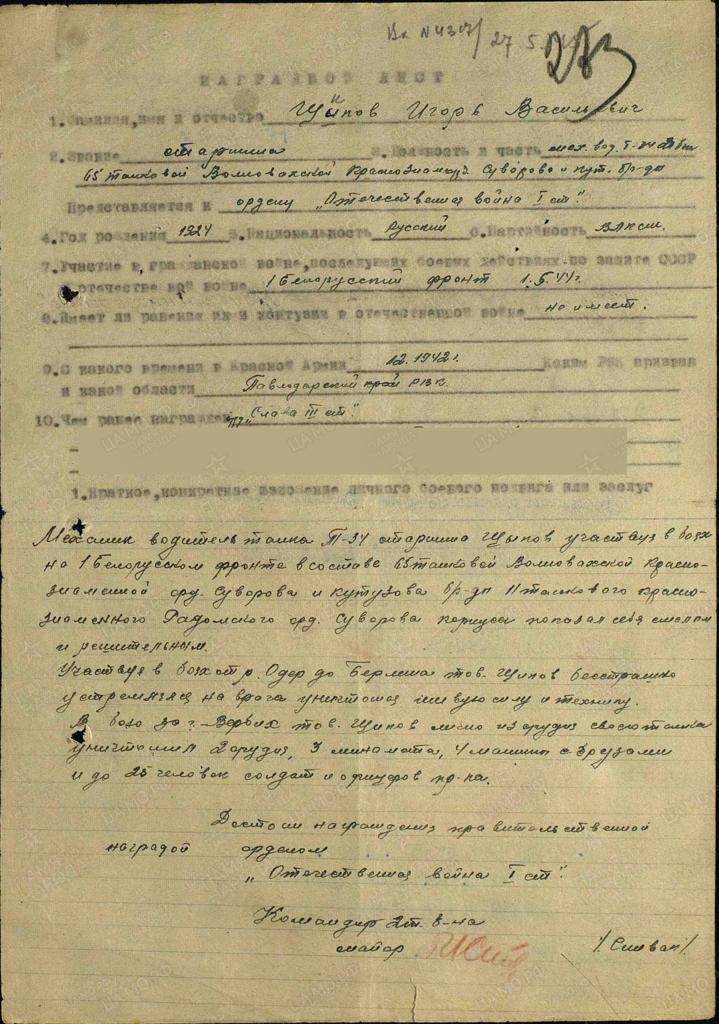 Вх N 4307/ 27 5.45
283
НАГРАДНОЙ ЛИСТ
1. Фамилия, имя и отчество Щипов Игорь Васильевич
2. Звание старшина 3. Должность и часть мех. вод. Т-34
65 танковой Волновахской Краснознамен. Суворова и Кут. бр-ды
Представляется к ордену „Отечественная война I ст."
4. Год рождения 1924 5. Национальность Русский 6. Партийность ВЛКСМ.
7. Участие в гражданской войне, последующих боевых действиях по защите СССР
отечественной войне 1 Белорусский фронт
8. Имеет ли ранения и контузии в отечественной войне не имеет.
9. С какого времени в Красной Армии 12.1942 г. Каким РВК призван
и какой области Павлодарский край РВК.
10. Чем ранее награжден „Слава III ст."
1. Краткое, конкретное изложение личного боевого подвига или заслуг
Механик водитель танка Т-34 старшина Щипов участвуя в боях
на 1 Белорусском фронте в составе 65 танковой Волновахской Красно-
знаменной орд. Суворова и Кутузова бр-ды 11 танкового красно-
знаменного Радомского орд. Суворова корпуса показал себя смелым
и решительным.
Участвуя в боях от р. Одер до Берлина тов. Щипов бесстрашно
устремлялся на врага уничтожая живую силу и технику.
В бою за г. Вербих тов. Щипов лично из орудия своего танка
уничтожил 2 орудия, 3 миномета, 4 машины с грузами
и до 25 человек солдат и офицеров пр-ка.
Достоин награждения правительственной
наградой орденом
„Отечественная война I ст."
Командир 2 т. б-на
майор /Сливак/